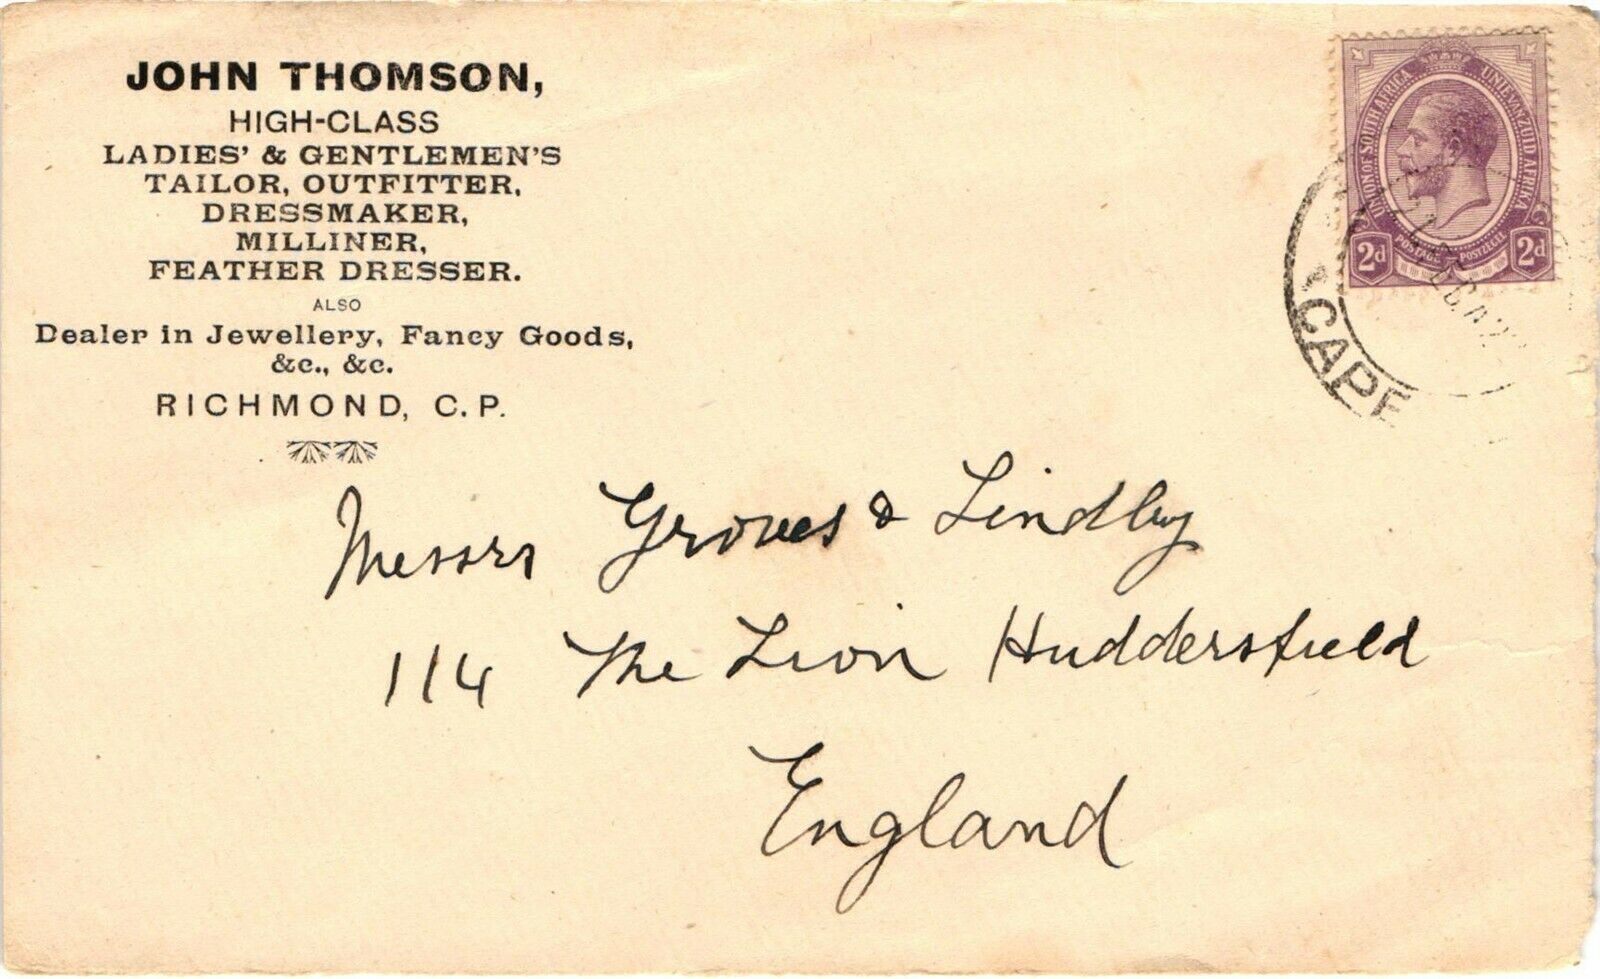 JOHN THOMSON,
HIGH-CLASS
LADIES' & GENTLEMEN'S
TAILOR, OUTFITTER,
DRESSMAKER,
MILLINER,
FEATHER DRESSER.
ALSO
Dealer in Jewellery, Fancy Goods,
&c., &c.
RICHMOND, C.P.
UNION OF SOUTH AFRICA
UNIE VAN ZUID AFRIKA
POSTAGE POSTZEGEL
2d 2d
CAPE
Messrs Groves & Lindley
114 The Lion Huddersfield
England